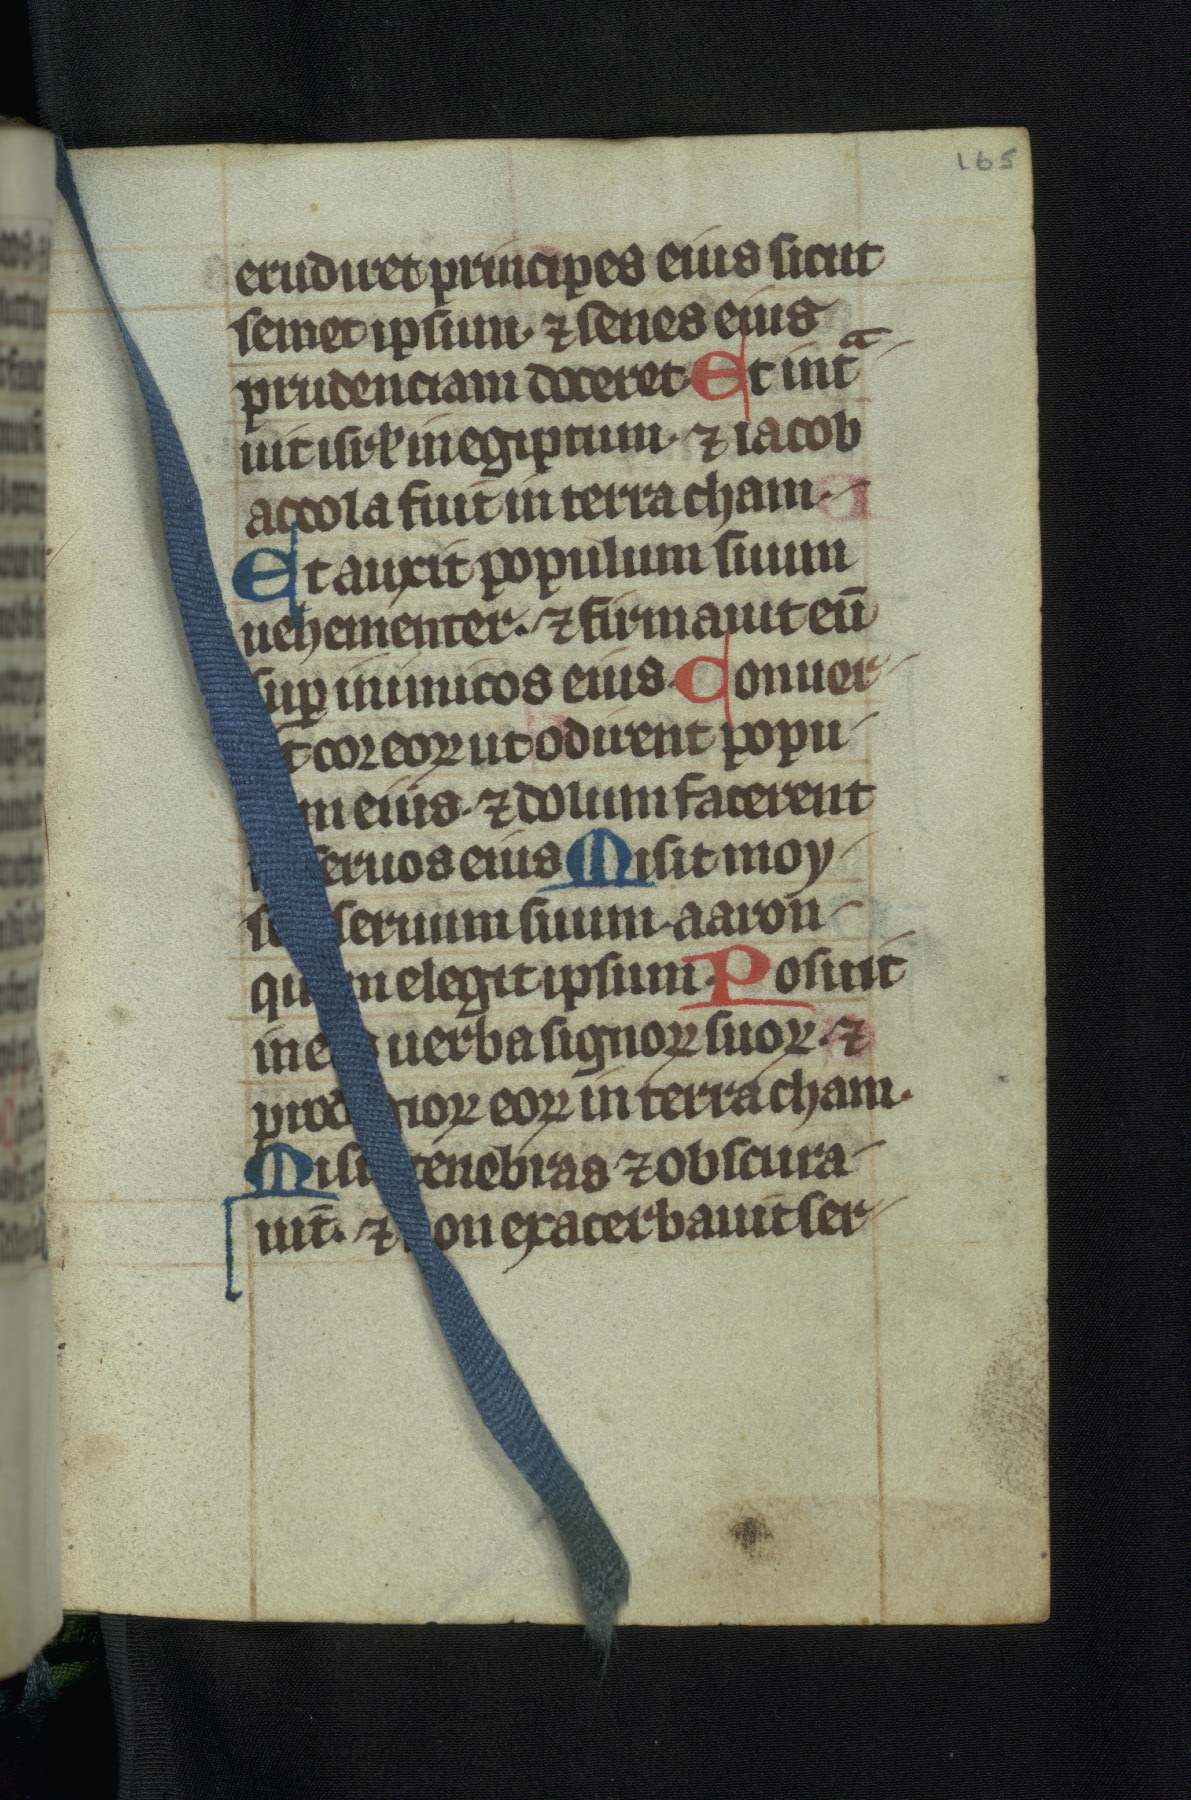 165
erudiret principes eius sicut
semet ipsum. ⁊ senes eius
prudenciam doceret Et int̃a-
uit isrł in egiptum. ⁊ iacob
accola fuit in terra cham.
Et auxit populum suum
uehementer. ⁊ firmauit eū
sup inimicos eius. Conuer-
cor eoꝝ ut odirent popu-
eius. ⁊ dolum facerent
seruos eius Misit moy-
seruum suum. aaron-
elegit ipsum. Posuit
in uerba signoꝝ suoꝝ. ⁊
eoꝝ in terra cham.
tenebras ⁊ obscura-
uit. ⁊ non exacerbauit ser-